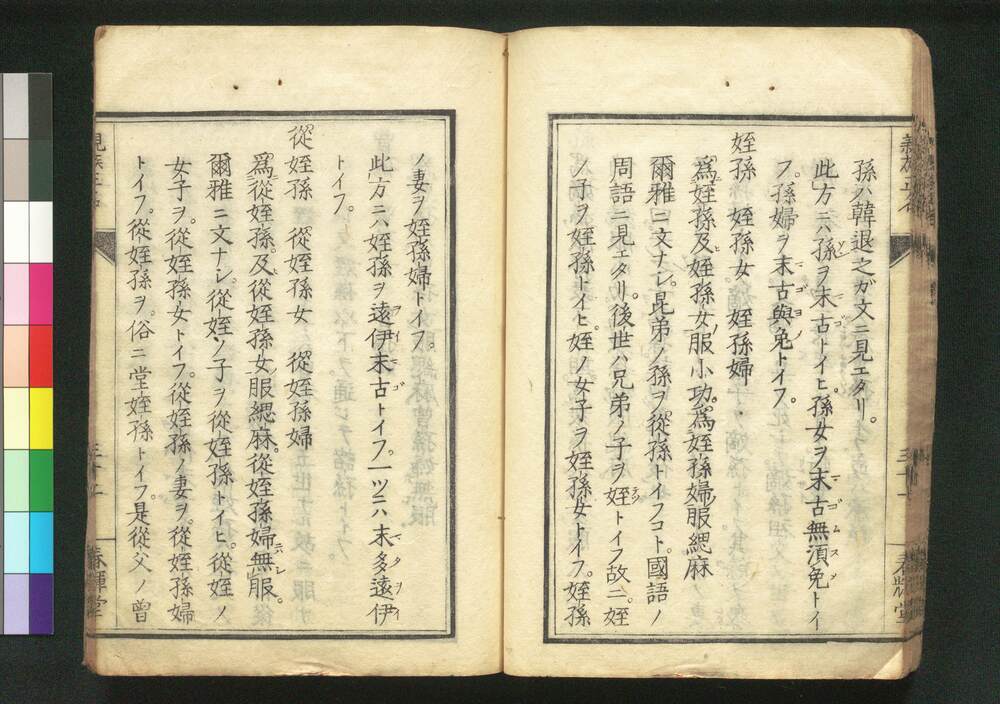 孫ハ韓退之ガ文ニ見エタリ。
此方ニハ孫ヲ末古トイヒ。孫女ヲ末古無湏免トイ
フ。孫婦ヲ末古與免トイフ。
姪孫 姪孫女 姪孫婦
爲姪孫及姪孫女服小功。爲姪孫婦服緦麻
爾雅ニ文ナシ。昆弟ノ孫ヲ從孫トイフコト。國語ノ
周語ニ見エタリ。後世ハ兄弟ノ子ヲ姪トイフ故ニ。姪
ノ子ヲ姪孫トイヒ。姪ノ女子ヲ姪孫女トイフ。姪孫
ノ妻ヲ姪孫婦トイフ。
此方ニハ姪孫ヲ遠伊末古トイフ。一ツニハ末多遠伊
トイフ。
從姪孫 從姪孫女 從姪孫婦
爲從姪孫。及從姪孫女服緦麻。從姪孫婦無服。
爾雅ニ文ナシ。從姪ノ子ヲ從姪孫トイヒ。從姪ノ
女子ヲ。從姪孫女トイフ。從姪孫ノ妻ヲ。從姪孫婦
トイフ。從姪孫ヲ。俗ニ堂姪孫トイフ。是從父ノ曾
春輝堂